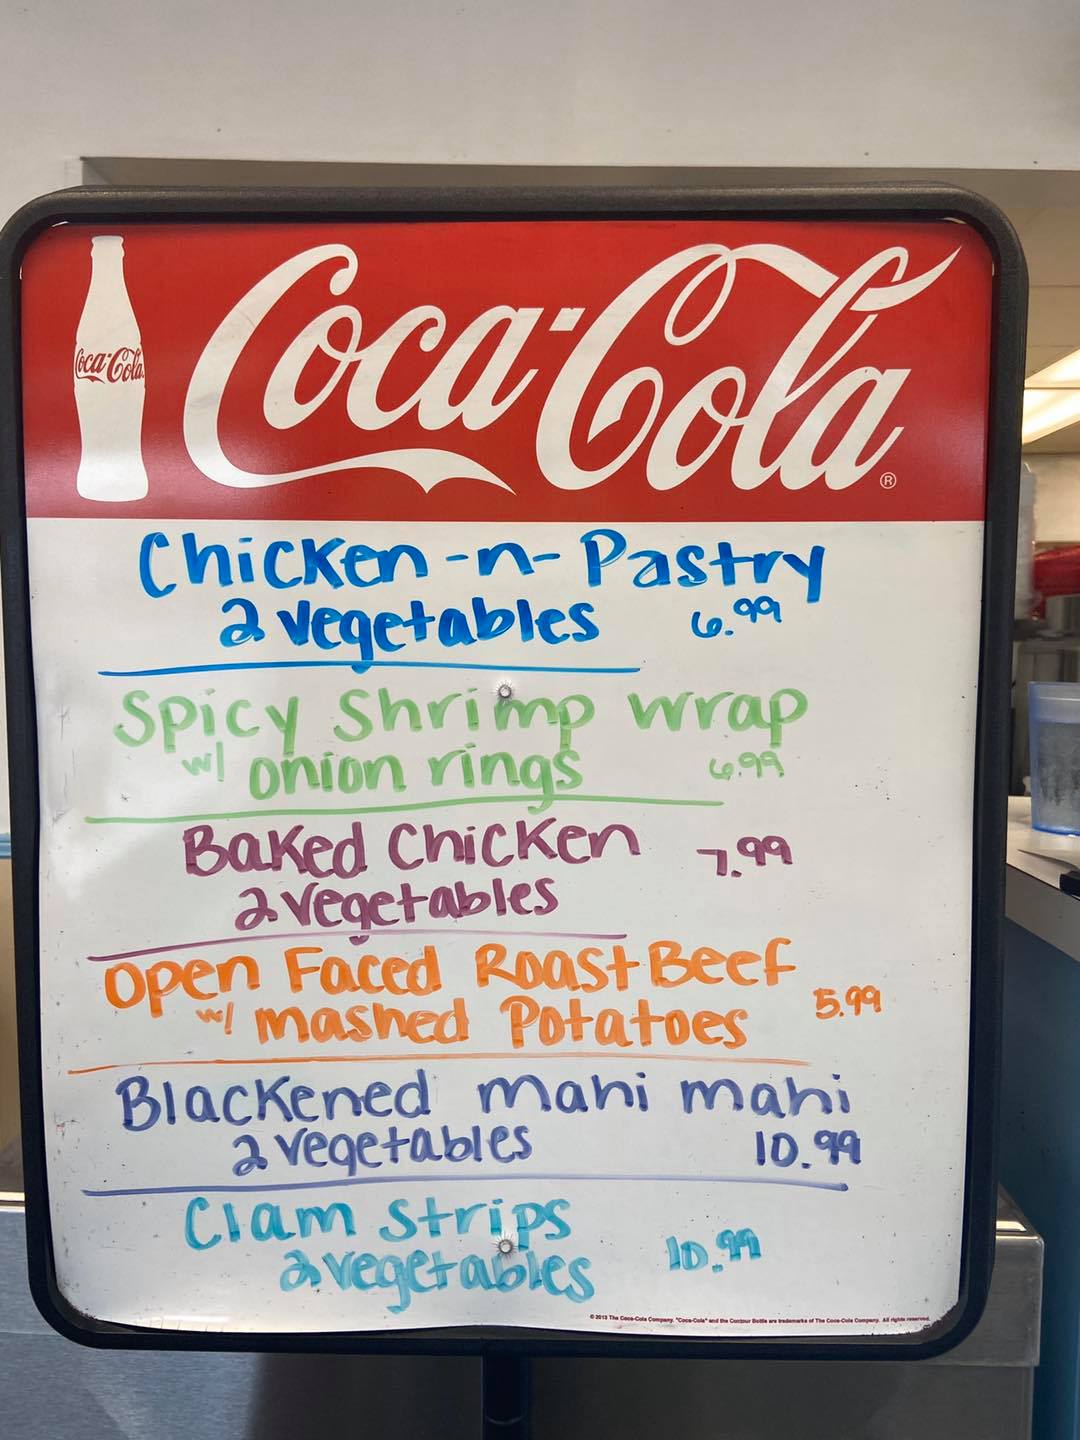 Coca-Cola
Coca-Cola®
Chicken-n-Pastry
2 vegetables 6.99
Spicy Shrimp wrap
w/ onion rings 6.99
Baked Chicken 7.99
2 vegetables
Open Faced Roast Beef
w/ mashed Potatoes 5.99
Blackened mahi mahi
2 vegetables 10.99
Clam strips
2 vegetables 10.99
© 2013 The Coca-Cola Company. "Coca-Cola" and the Contour Bottle are trademarks of The Coca-Cola Company. All rights reserved.